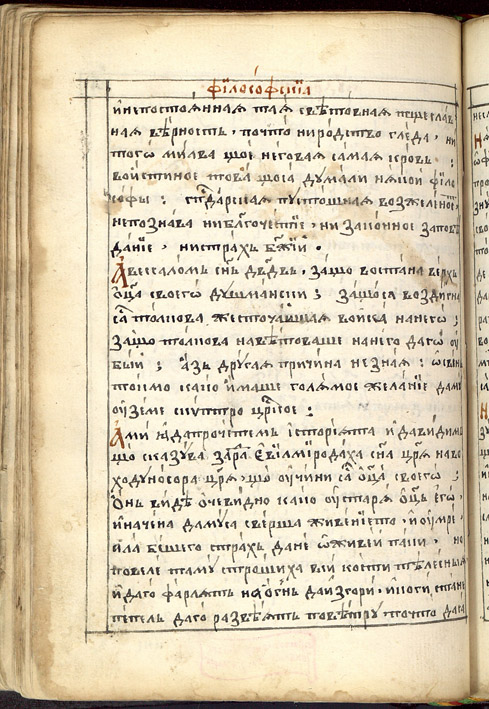 філософскїѧ
и непостоѧннаѧ таѧ свѣтовнаѧ тщеслав
наѧ вѣрность, почто ни родство глѣда, ни
тогѡ милва що е неговаѧ самаѧ кровь:
воистинно това що са думали нѧкои філо
софы: гдарскаѧ пустошнаѧ возжеленїе,
не познава ни благочестїе, ни законное запове
данїе, ни страхъ бжїй.
Авессаломъ снъ двдвъ, защо востана верхъ
оца своего душмански; защо са воздигна
са толкова жесточайшаѧ войска на него;
защо толкова навѣтоваше на него да гѡ у
бїй; азъ другаѧ причина не знаѧ: ѡсвень
токмо како имаше голѧмое желанїе да му
уземе скуптро црское:
Ами й да прочетемъ исторїѧта и да видиме
що сказува за Евїлмїродаха сна црѧ наву
ходуносора црѧ, що учини са оца своего;
Онъ видѣ очевидно како устарѧ оцъ егѡ,
и начена да му са сверша живенїето, и умре,
и ѧла бѣшего страхъ да не ѡживей паки, но
повеле та му строшиха вси кости тѣлесныѧ
и да го фарлѧтъ на огнь да изгори, и ноги стане
пепелъ да го развѣѧтъ по вѣтру, почто да са